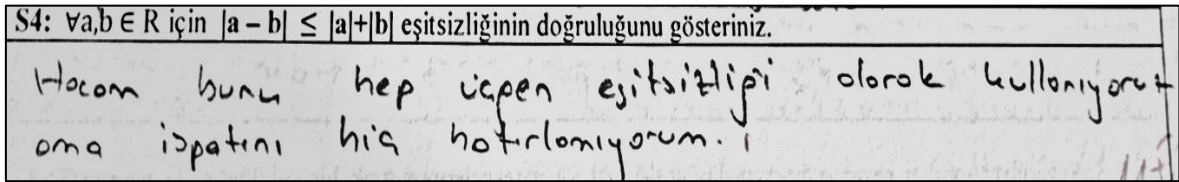 S4: ∀a,b ∈ R için |a – b| ≤ |a|+|b| eşitsizliğinin doğruluğunu gösteriniz.
Hocam bunu hep üçgen eşitsizliği olarak kullanıyoruz
ama ispatını hiç hatırlamıyorum.